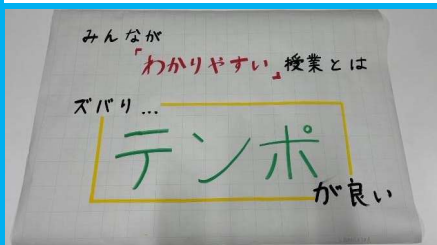 みんなが
「わかりやすい」授業とは
ズバリ...
テンポ
が良い